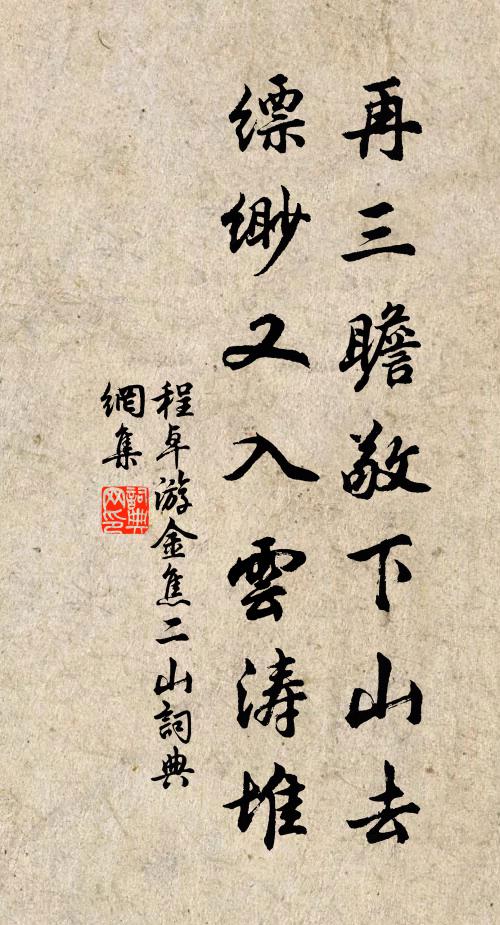 再三瞻敬下山去
缥缈又入雲涛堆
程卓游金焦二山詞典
網集
詞典
网印